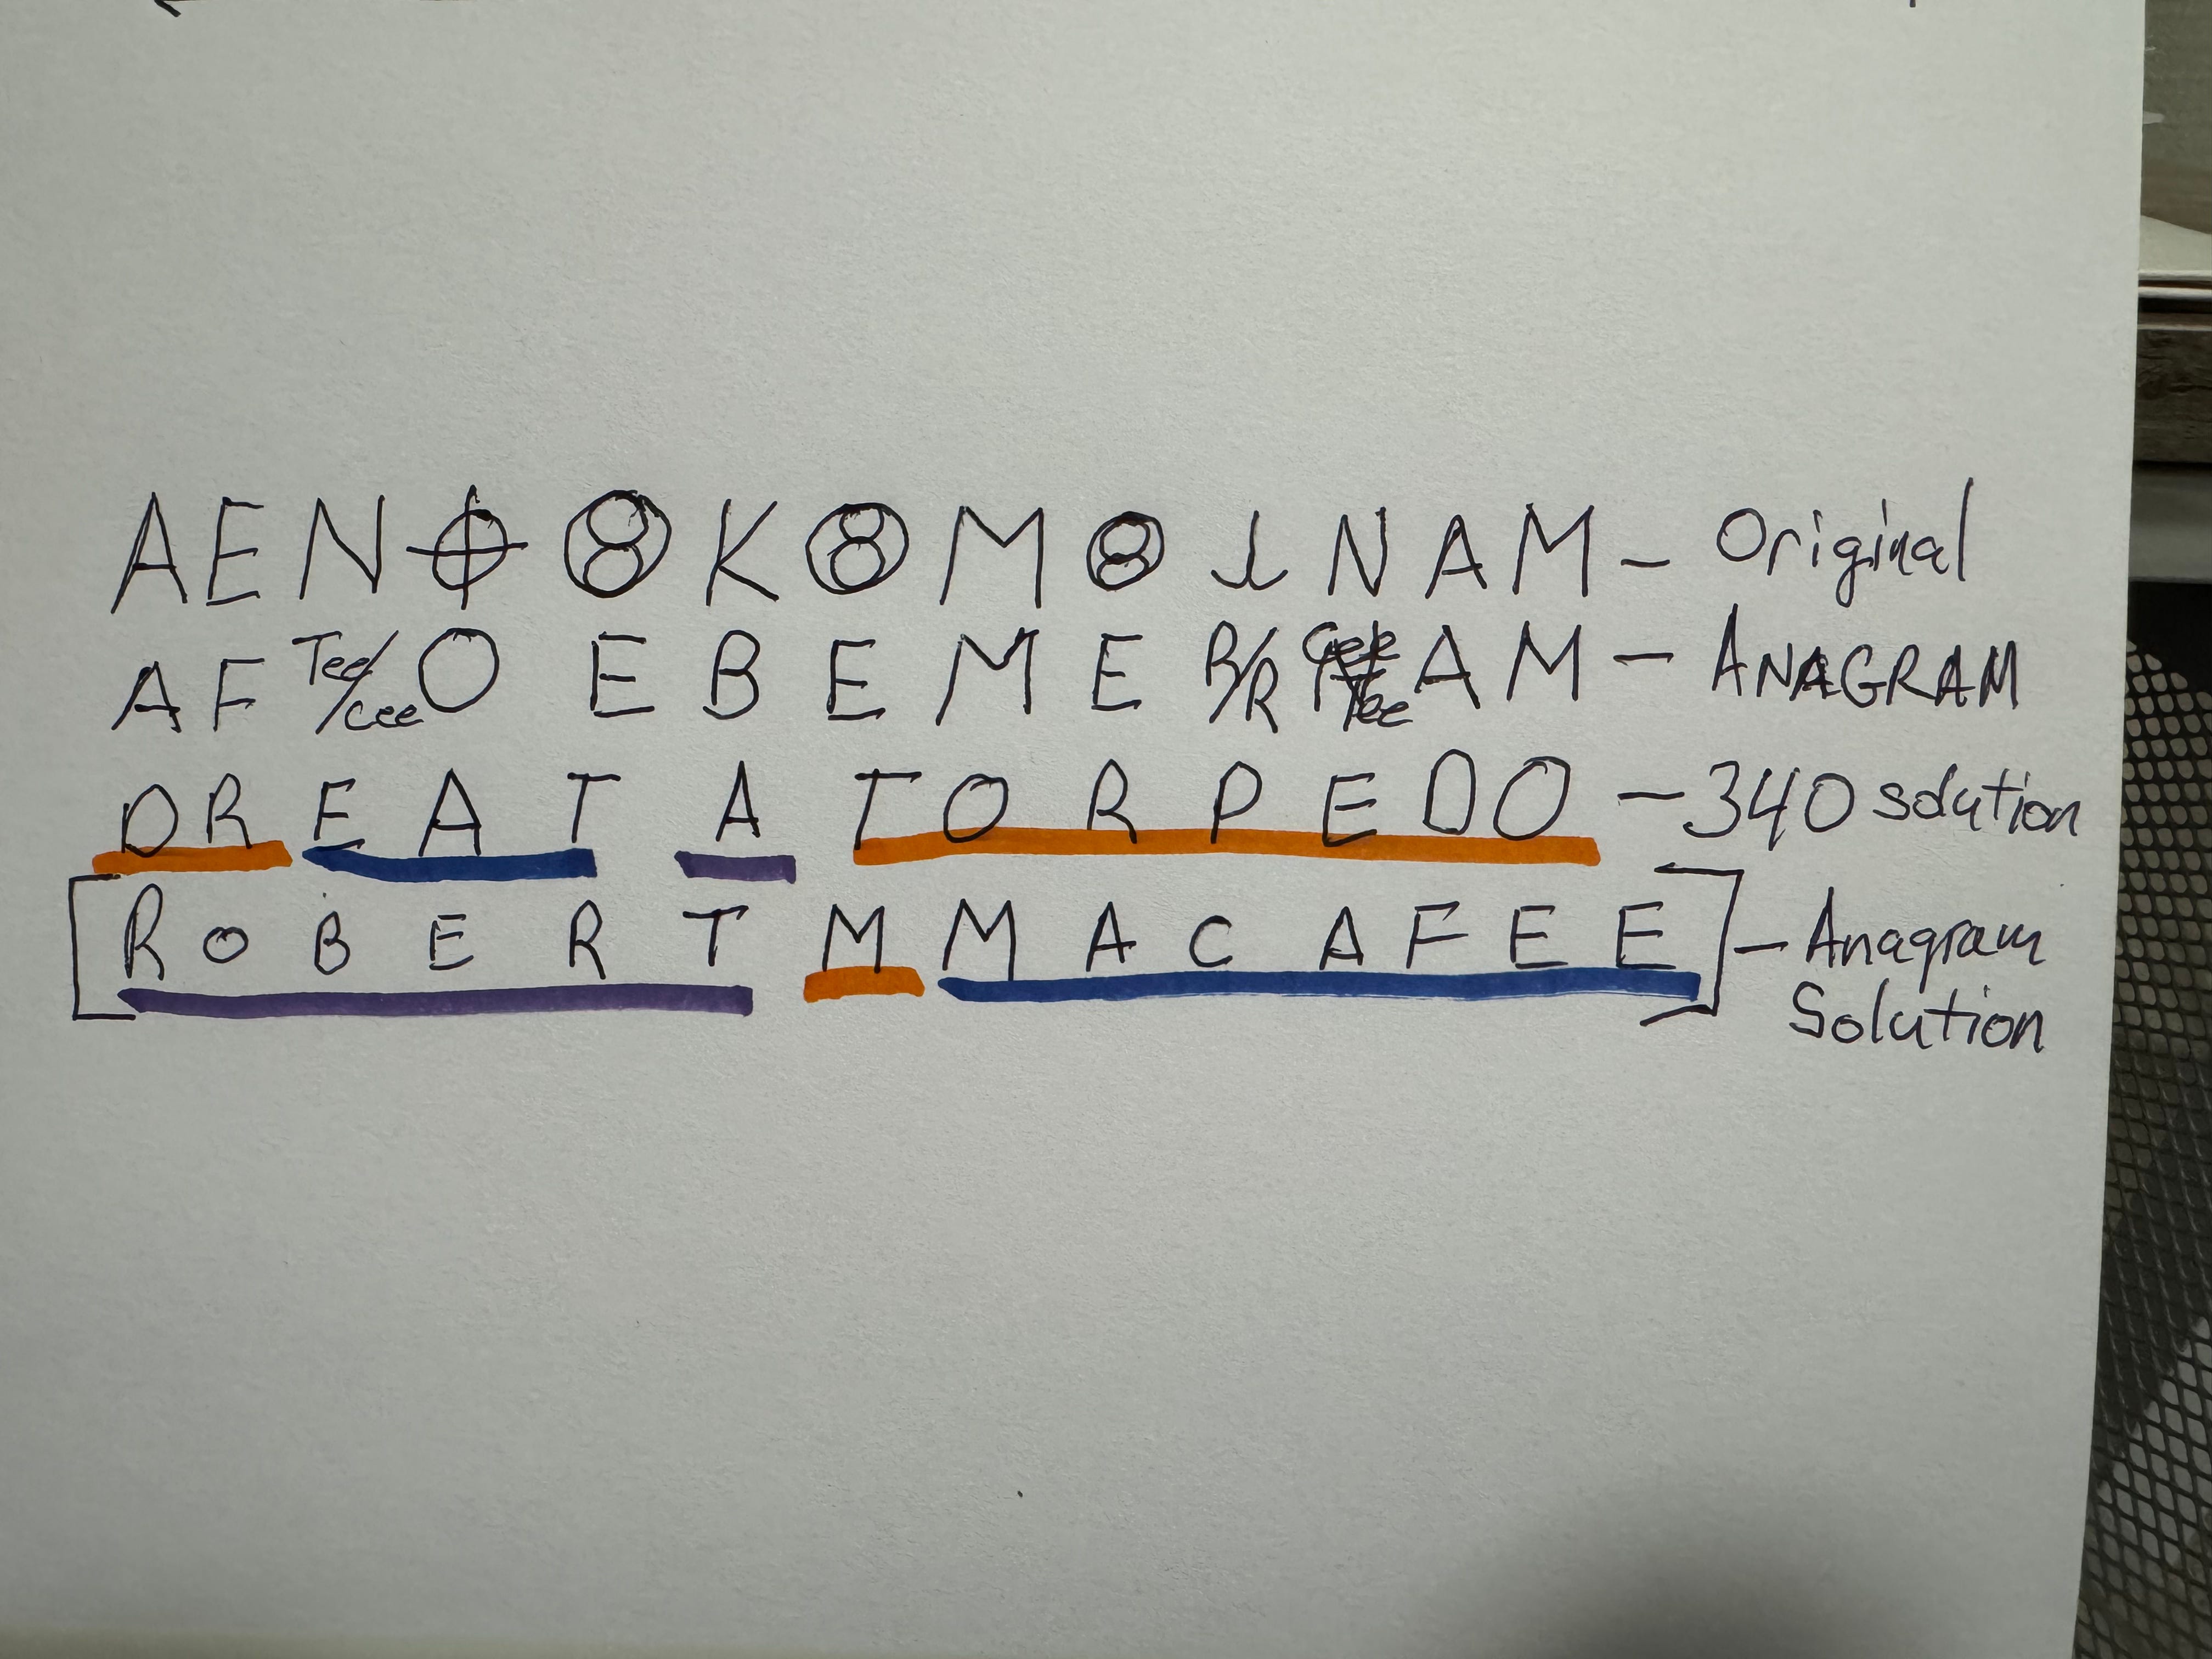 A E N ⌖ ⑧ K ⑧ M ⑧ ⅃ N A M - Original
A F Tee/cee O E B E M E B/R Tee A M - ANAGRAM
D R E A T A T O R P E D O - 340 solution
[R O B E R T M M A C A F E E] - Anagram
Solution